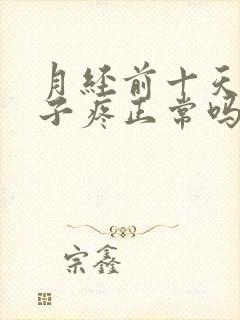 月经前十天
子疼正常吗
宗鑫